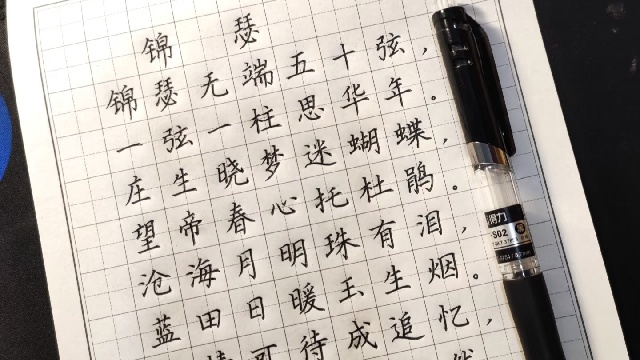 锦瑟
锦瑟无端五十弦，
一弦一柱思华年。
庄生晓梦迷蝴蝶，
望帝春心托杜鹃。
沧海月明珠有泪，
蓝田日暖玉生烟。
情可待成追忆，
然
得力
S02